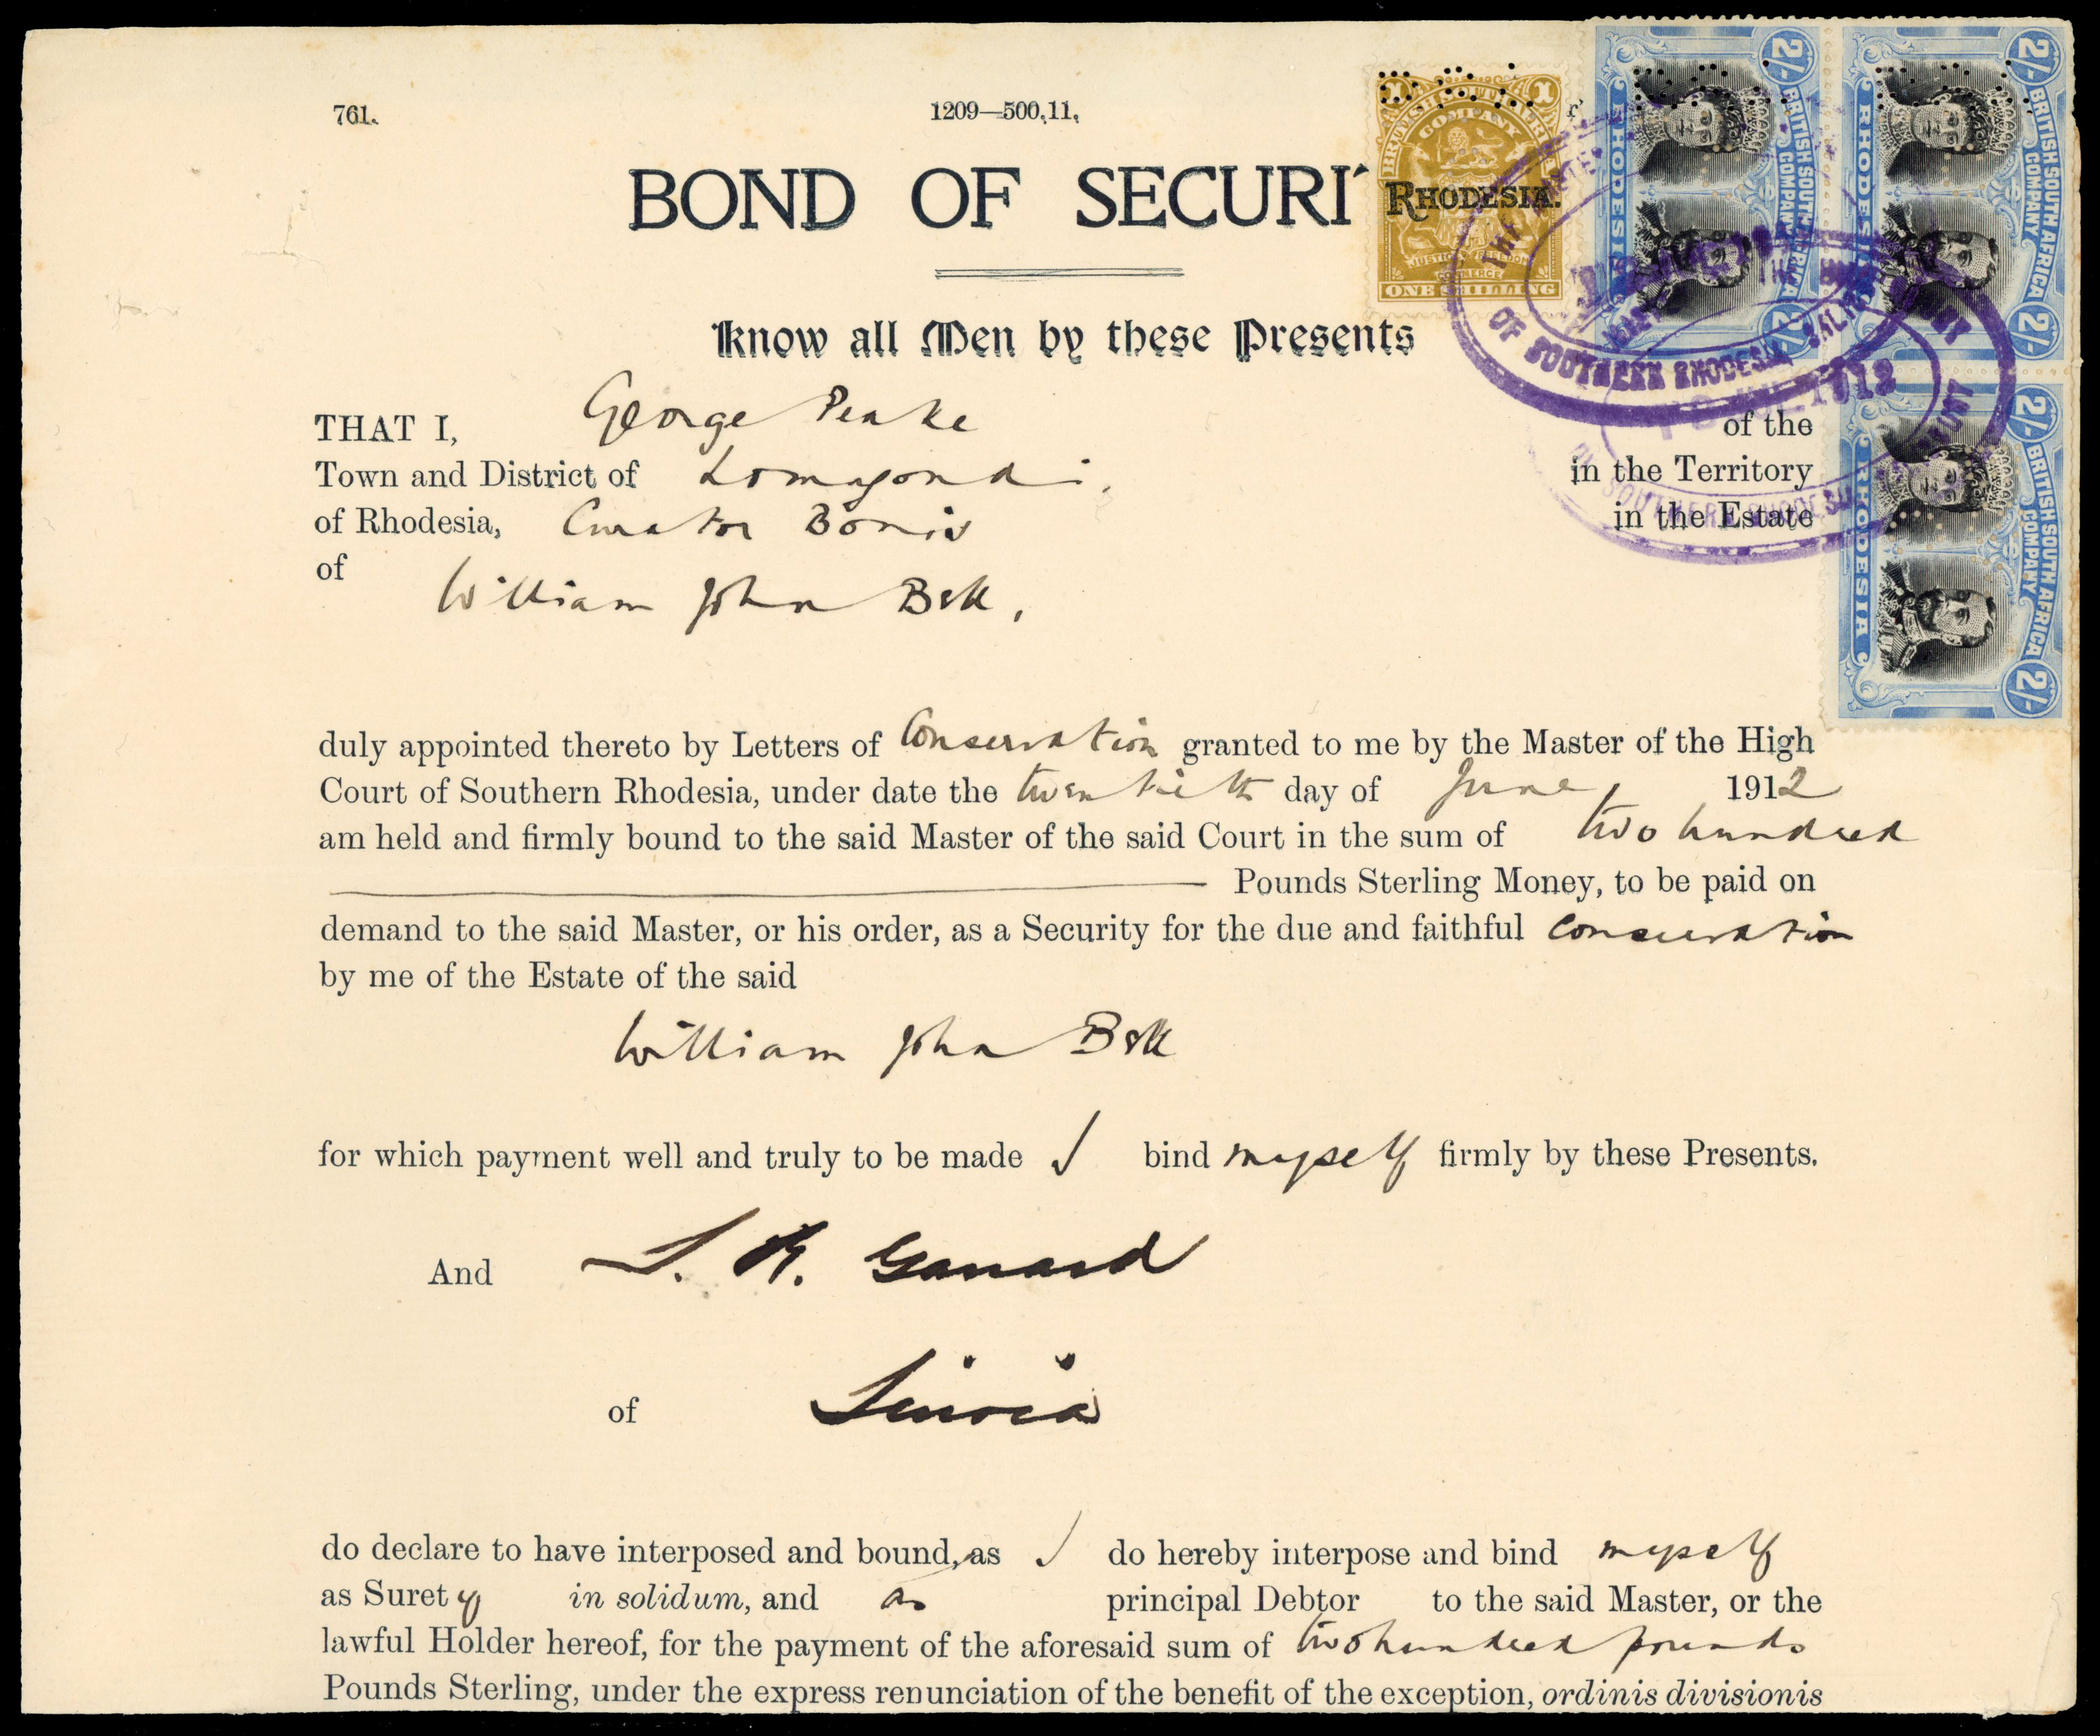 761.
1209—500,11.
BOND OF SECURI
Know all Men by these Presents
THAT I, George Peake of the
Town and District of Lomagondi, in the Territory
of Rhodesia, Curator Bonis in the Estate
of William John Bell,
duly appointed thereto by Letters of Conservation granted to me by the Master of the High
Court of Southern Rhodesia, under date the twentieth day of June, 1912
am held and firmly bound to the said Master of the said Court in the sum of two hundred
Pounds Sterling Money, to be paid on
demand to the said Master, or his order, as a Security for the due and faithful Conservation
by me of the Estate of the said
William John Bell
for which payment well and truly to be made I bind myself firmly by these Presents.
And
of Sinoia
do declare to have interposed and bound, as I do hereby interpose and bind myself
as Surety in solidum, and as principal Debtor to the said Master, or the
lawful Holder hereof, for the payment of the aforesaid sum of two hundred pounds
Pounds Sterling, under the express renunciation of the benefit of the exception, ordinis divisionis
1 1
BRITISH SOUTH AFRICA
COMPANY
RHODESIA.
JUSTICE FREEDOM
COMMERCE
ONE SHILLING
2/- BRITISH SOUTH AFRICA COMPANY 2/-
RHODESIA
2/- BRITISH SOUTH AFRICA COMPANY 2/-
RHODESIA
2/- BRITISH SOUTH AFRICA COMPANY 2/-
RHODESIA
OF SOUTHERN RHODESIA
1912
SOUTHERN RHODESIA